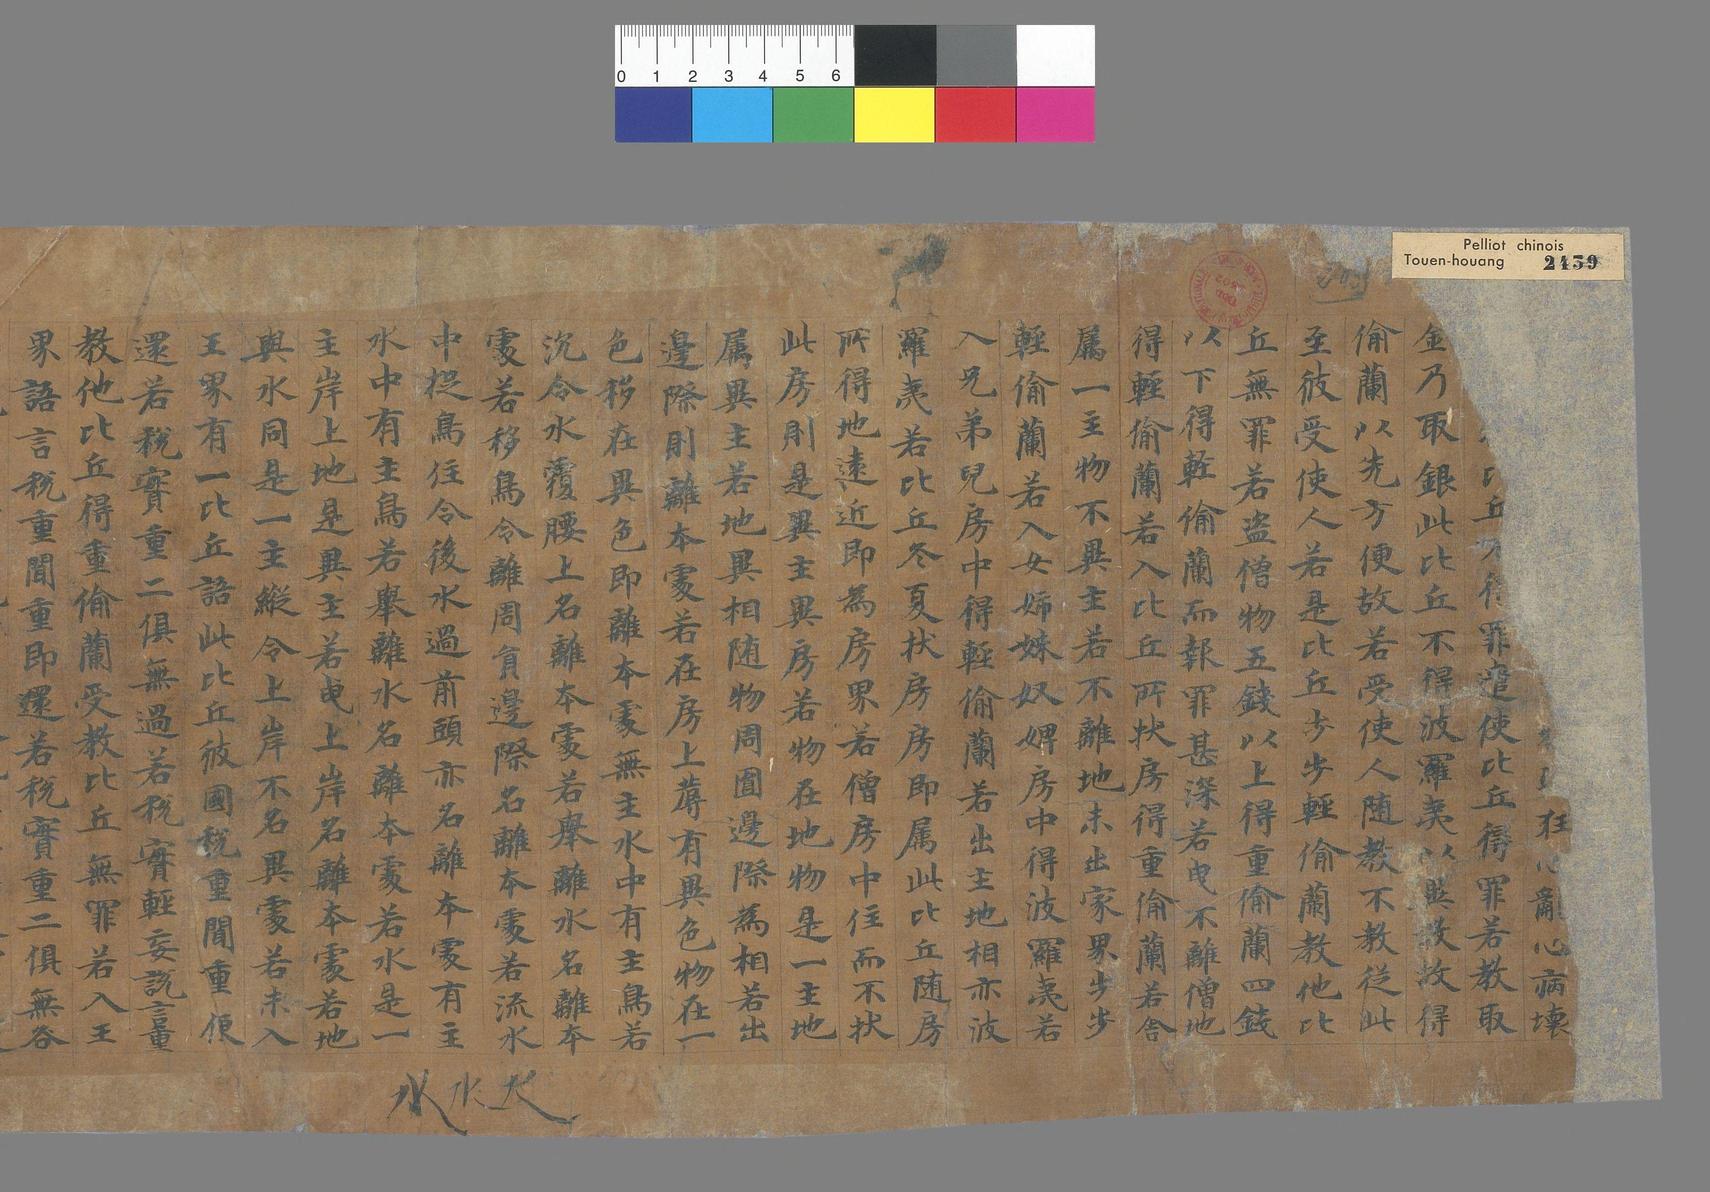 0 1 2 3 4 5 6
Pelliot chinois
Touen-houang 2439
狂心亂心病壞
比丘得罪遣使比丘得罪若教取
金乃取銀此比丘不得波羅夷以異教故得
偷蘭以先方便故若受使人随教不教從此
至彼受使人若是比丘步步輕偷蘭教他比
丘無罪若盜僧物五錢以上得重偷蘭四錢
以下得輕偷蘭而報罪甚深若曳不離僧地
得輕偷蘭若入比丘所狀房得重偷蘭若舍
属一主物不異主若不離地未出家界步步
輕偷蘭若入女姊妹奴婢房中得波羅夷若
入兄弟兒房中得輕偷蘭若出主地相亦波
羅夷若比丘冬夏狀房房即属此比丘随房
所得地遠近即為房界若僧房中住而不狀
此房則是異主異房若物在地物是一主地
属異主若地異相随物周圓邊際為相若出
邊際則離本處若在房上蓐有異色物在一
色移在異色即離本處無主水中有主鳥若
沉令水覆腰上名離本處若舉離水名離本
處若移鳥令離周負邊際名離本處若流水
中捉鳥住令後水過前頭亦名離本處有主
水中有主鳥若舉離水名離本處若水是一
主岸上地是異主若曳上岸名離本處若地
與水同是一主縱令上岸不名異處若未入
王界有一比丘語此比丘彼國税重聞重便
還若税實重二俱無過若税實輕妄説言重
教他比丘得重偷蘭受教比丘無罪若入王
界語言税重聞重即還若税實重二俱無咎
大水水